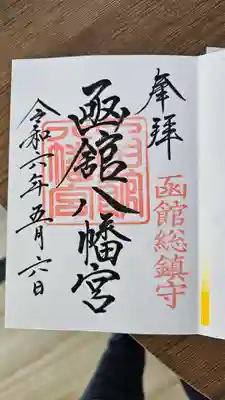 奉拝
函館総鎮守
函館八幡宮
令和六年五月六日